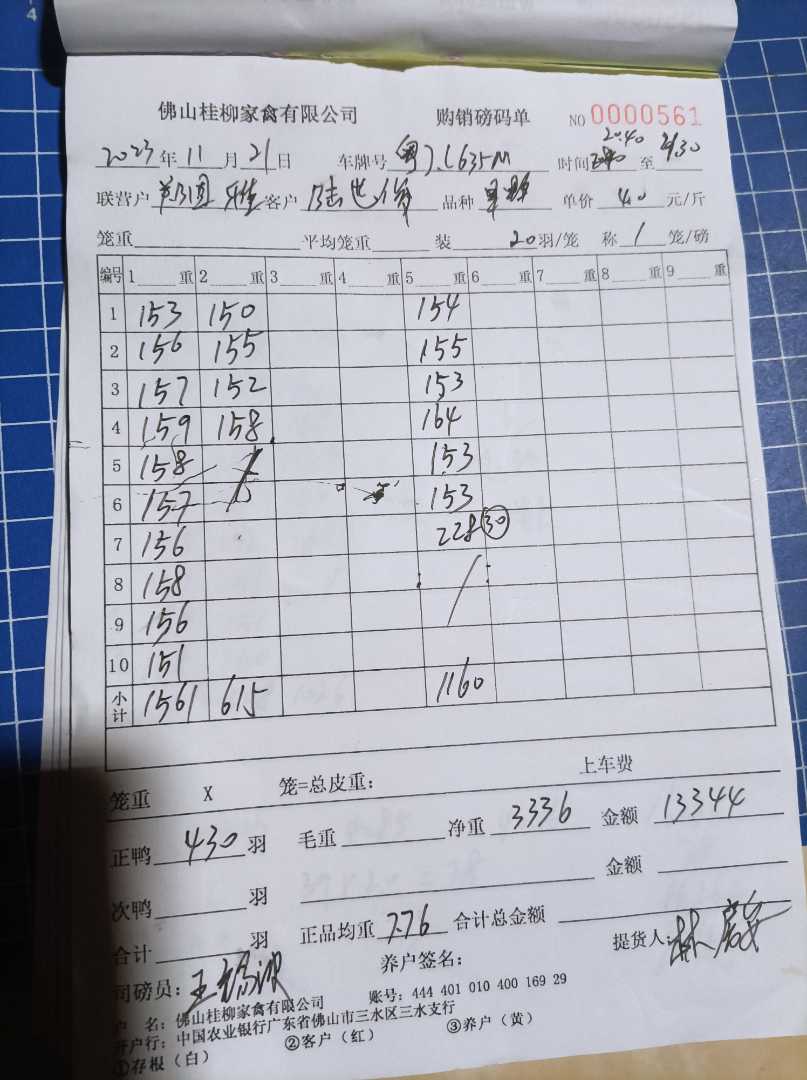 佛山桂柳家禽有限公司 购销磅码单 NO 0000561
20:40
2023年 11 月 21 日 车牌号 粤J.L635M 时间 至 21:30
联营户 客户 品种 单价 4.0 元/斤
笼重 平均笼重 装 20 羽/笼 称 1 笼/磅
编号 1 重 2 重 3 重 4 重 5 重 6 重 7 重 8 重 9 重
1 153 150 154
2 156 155 155
3 157 152 153
4 159 158 164
5 158 153
6 157 153
7 156 228 30
8 158
9 156
10 151
小计 1561 615 1160
笼重 X 笼=总皮重: 上车费
正鸭 430 羽 毛重 净重 3336 金额 13344
次鸭 羽 金额
合计 羽 正品均重 7.76 合计总金额
司磅员: 养户签名: 提货人:
户 名: 佛山桂柳家禽有限公司 账号: 444 401 010 400 169 29
开户行: 中国农业银行广东省佛山市三水区三水支行
①存根(白) ②客户(红) ③养户(黄)